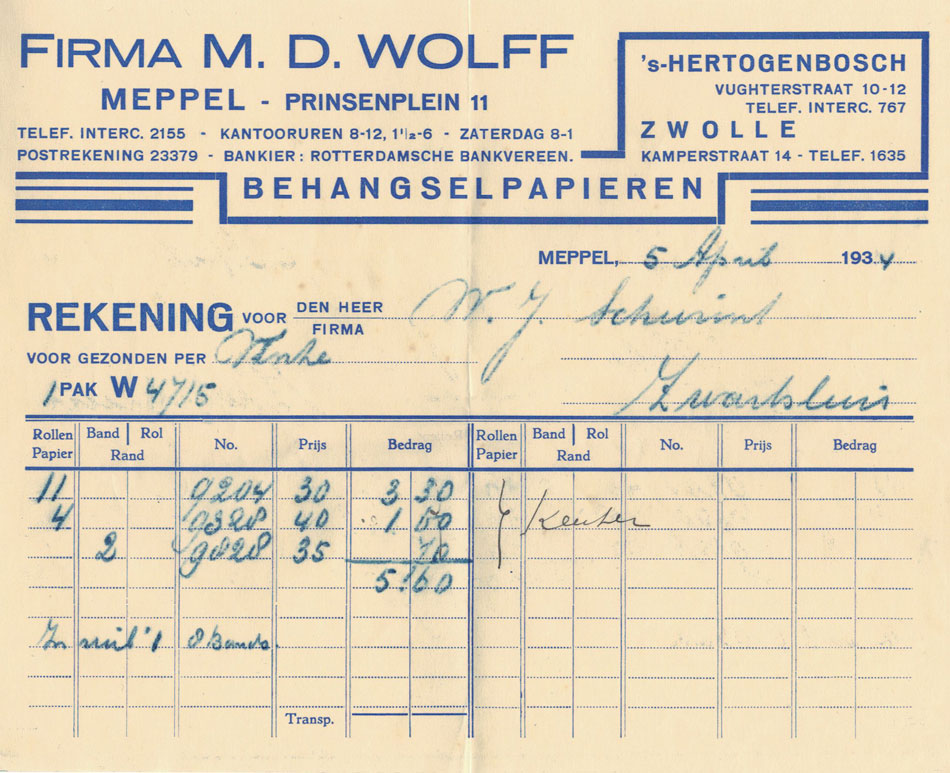 FIRMA M. D. WOLFF
MEPPEL - PRINSENPLEIN 11
TELEF. INTERC. 2155 - KANTOORUREN 8-12, 1½-6 - ZATERDAG 8-1
POSTREKENING 23379 - BANKIER: ROTTERDAMSCHE BANKVEREEN.
's-HERTOGENBOSCH
VUGHTERSTRAAT 10-12
TELEF. INTERC. 767
ZWOLLE
KAMPERSTRAAT 14 - TELEF. 1635
BEHANGSELPAPIEREN
MEPPEL, 5 April 1934
REKENING VOOR DEN HEER FIRMA W. J. Schurink
VOOR GEZONDEN PER
1 PAK W 4715 Zwartsluis
Rollen Papier Band Rol Rand No. Prijs Bedrag Rollen Papier Band Rol Rand No. Prijs Bedrag
11 9204 30 3 30
4 9328 40 1 60 Keuken
2 9828 35 70
5.60
Transp.